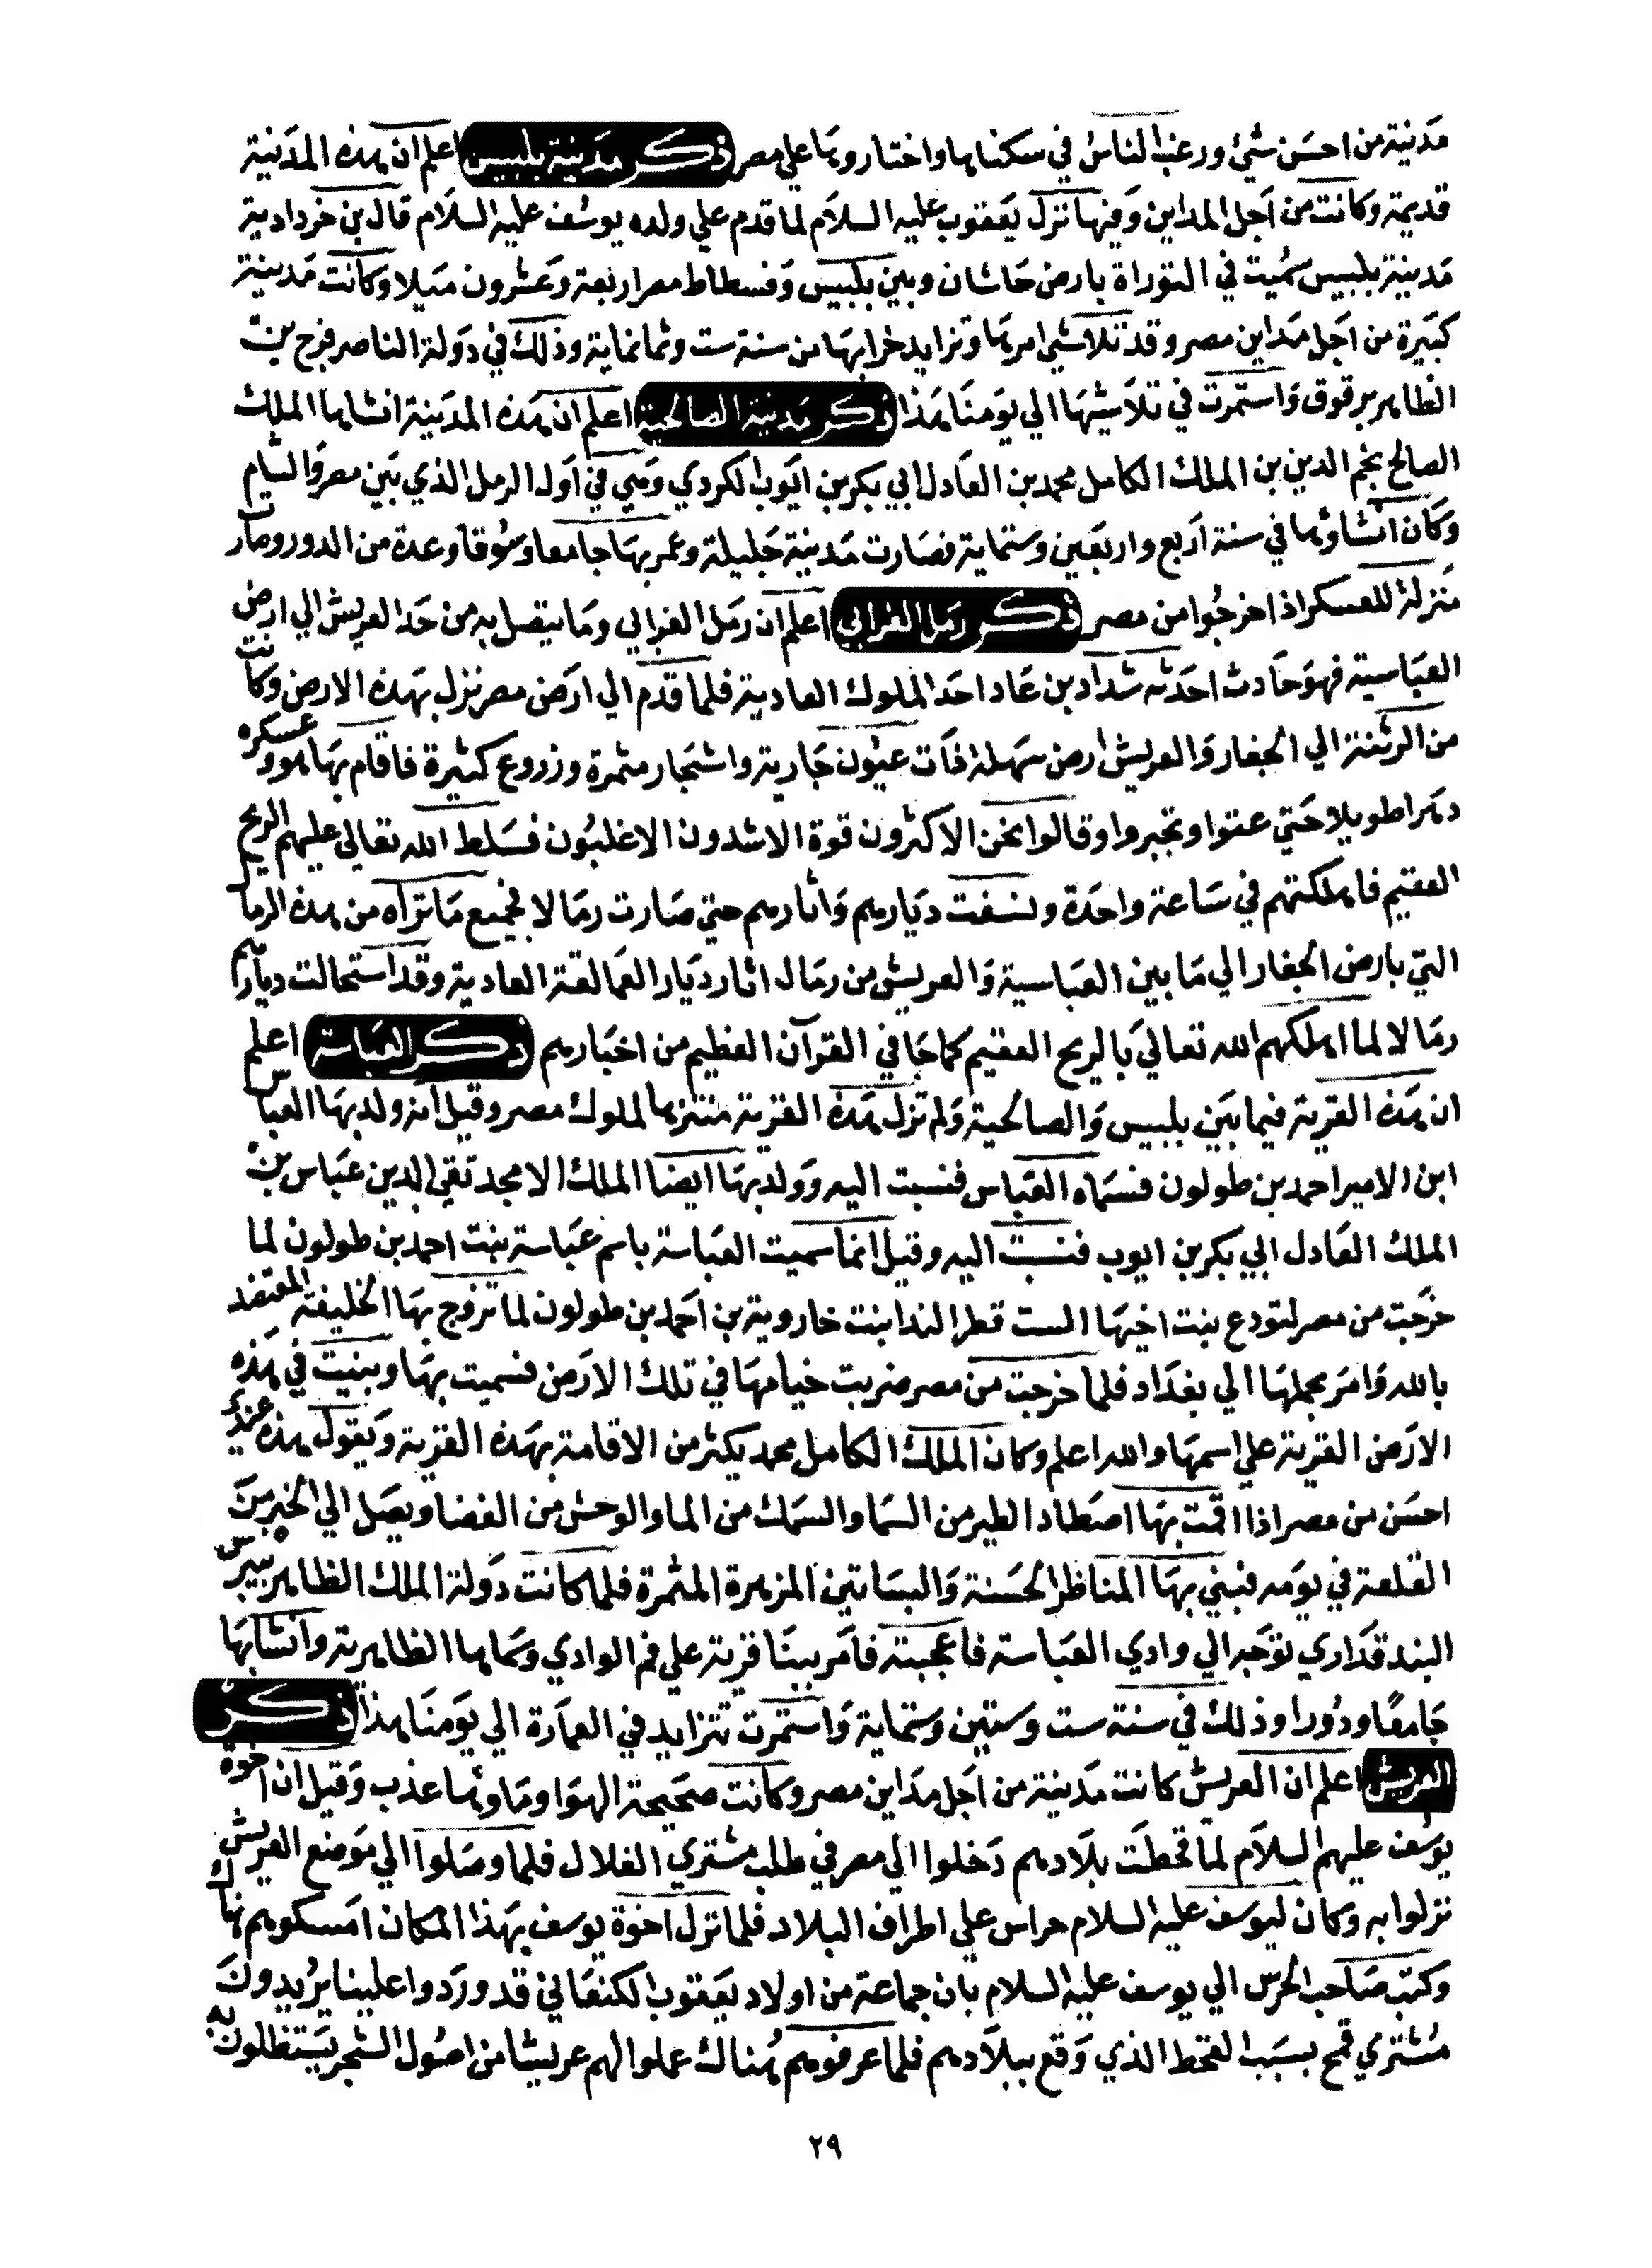 مدينة من احسن شئ ورغب الناس في سكناها واختاروها علي مصر ذكر مدينة بلبيس اعلم ان هذه المدينة
قديمة وكانت من اجل المداين وفيها نزل يعقوب عليه السلام لما قدم علي ولده يوسف عليه السلام قال بن خردادية
مدينة بلبيس سميت في التوراة بارض حاشان وبين بلبيس وفسطاط مصر اربعة وعشرون ميلا وكانت مدينة
كبيرة من اجل مداين مصر وقد تلاشي امرها وتزايد خرابها من سنة ست وثمانماية وذلك في دولة الناصر فرج بن
الظاهر برقوق واستمرت في تلاشيها الي يومنا هذا ذكر مدينة الصالحية اعلم ان هذه المدينة انشاها الملك
الصالح نجم الدين بن الملك الكامل محمد بن العادل ابي بكر بن ايوب الكردي وهي في اول الرمل الذي بين مصر والشام
وكان انشاوها في سنة اربع واربعين وستماية فصارت مدينة جليلة وعمر بها جامعا وسوقا وعدة من الدور وصار
منزلة للعسكر اذا خرجوا من مصر ذكر رمل الغرابي اعلم ان رمل الغرابي وما يتصل به من حد العريش الي ارض
العباسية فهو حادث احدثه شداد بن عاد احد الملوك العادية فلما قدم الي ارض مصر نزل بهذه الارض وكانت
من الرشنة الي الجفار والعريش ارض سهلة ذات عيون جارية واشجار مثمرة وزروع كثيرة فاقام بها هو وعسكره
دهرا طويلا حتي عتوا وتجبروا وقالوا نحن الاكثرون قوة الاشدون الاغلبون فسلط الله تعالي عليهم الريح
العقيم فاهلكتهم في ساعة واحدة ونسفت ديارهم واثارهم حتي صارت رمالا فجميع ما تراه من هذه الرمال
التي بارض الجفار الي ما بين العباسية والعريش من رمال اثار ديار العمالقة العادية وقد استحالت ديارهم
رمالا لما اهلكهم الله تعالي بالريح العقيم كما جا في القرآن العظيم من اخبارهم ذكر العباسة اعلم
ان هذه القرية فيما بين بلبيس والصالحية ولم تزل هذه القرية منتزها لملوك مصر وقيل انه ولد بها العباس
ابن الامير احمد بن طولون فسماه العباس فنسبت اليه وولد بها ايضا الملك الامجد تقي الدين عباس بن
الملك العادل ابي بكر بن ايوب فنسبت اليه وقيل انما سميت العباسة باسم عباسة بنت احمد بن طولون لما
خرجت من مصر لتودع بنت اخيها الست قطر الندا بنت خاروية بن احمد بن طولون لما تزوج بها الخليفة المعتضد
بالله وامر بحملها الي بغداد فلما خرجت من مصر ضربت خيامها في تلك الارض فسميت بها وبنيت في هذه
الارض القرية علي اسمها والله اعلم وكان الملك الكامل محمد يكثر من الاقامة بهذه القرية ويقول هذه عندي
احسن من مصر اذا اقمت بها اصطاد الطير من السما والسمك من الما والوحش من الفضا ويصل الي الخبز من
القلعة في يومه فبني بها المناظر الحسنة والبساتين المزهرة المثمرة فلما كانت دولة الملك الظاهر بيبرس
البندقداري توجه الي وادي العباسة فاعجبته فامر ببنا قرية علي فم الوادي وسماها الظاهرية وانشا بها
جامعا ودورا وذلك في سنة ست وستين وستماية واستمرت تتزايد في العمارة الي يومنا هذا ذكر
العريش اعلم ان العريش كانت مدينة من اجل مداين مصر وكانت صحيحة الهوا وماوها عذب وقيل ان اخوة
يوسف عليهم السلام لما قحطت بلادهم دخلوا الي مصر في طلب مشتري الغلال فلما وصلوا الي موضع العريش
نزلوا به وكان ليوسف عليه السلام حراس علي اطراف البلاد فلما نزل اخوة يوسف بهذا المكان امسكوهم هناك
وكتب صاحب الحرس الي يوسف عليه السلام بان جماعة من اولاد يعقوب الكنعاني قد وردوا علينا يريدون
مشتري قمح بسبب القحط الذي وقع ببلادهم فلما عرفوهم هناك عملوا لهم عريشا من اصول الشجر يستظلون به
٢٩